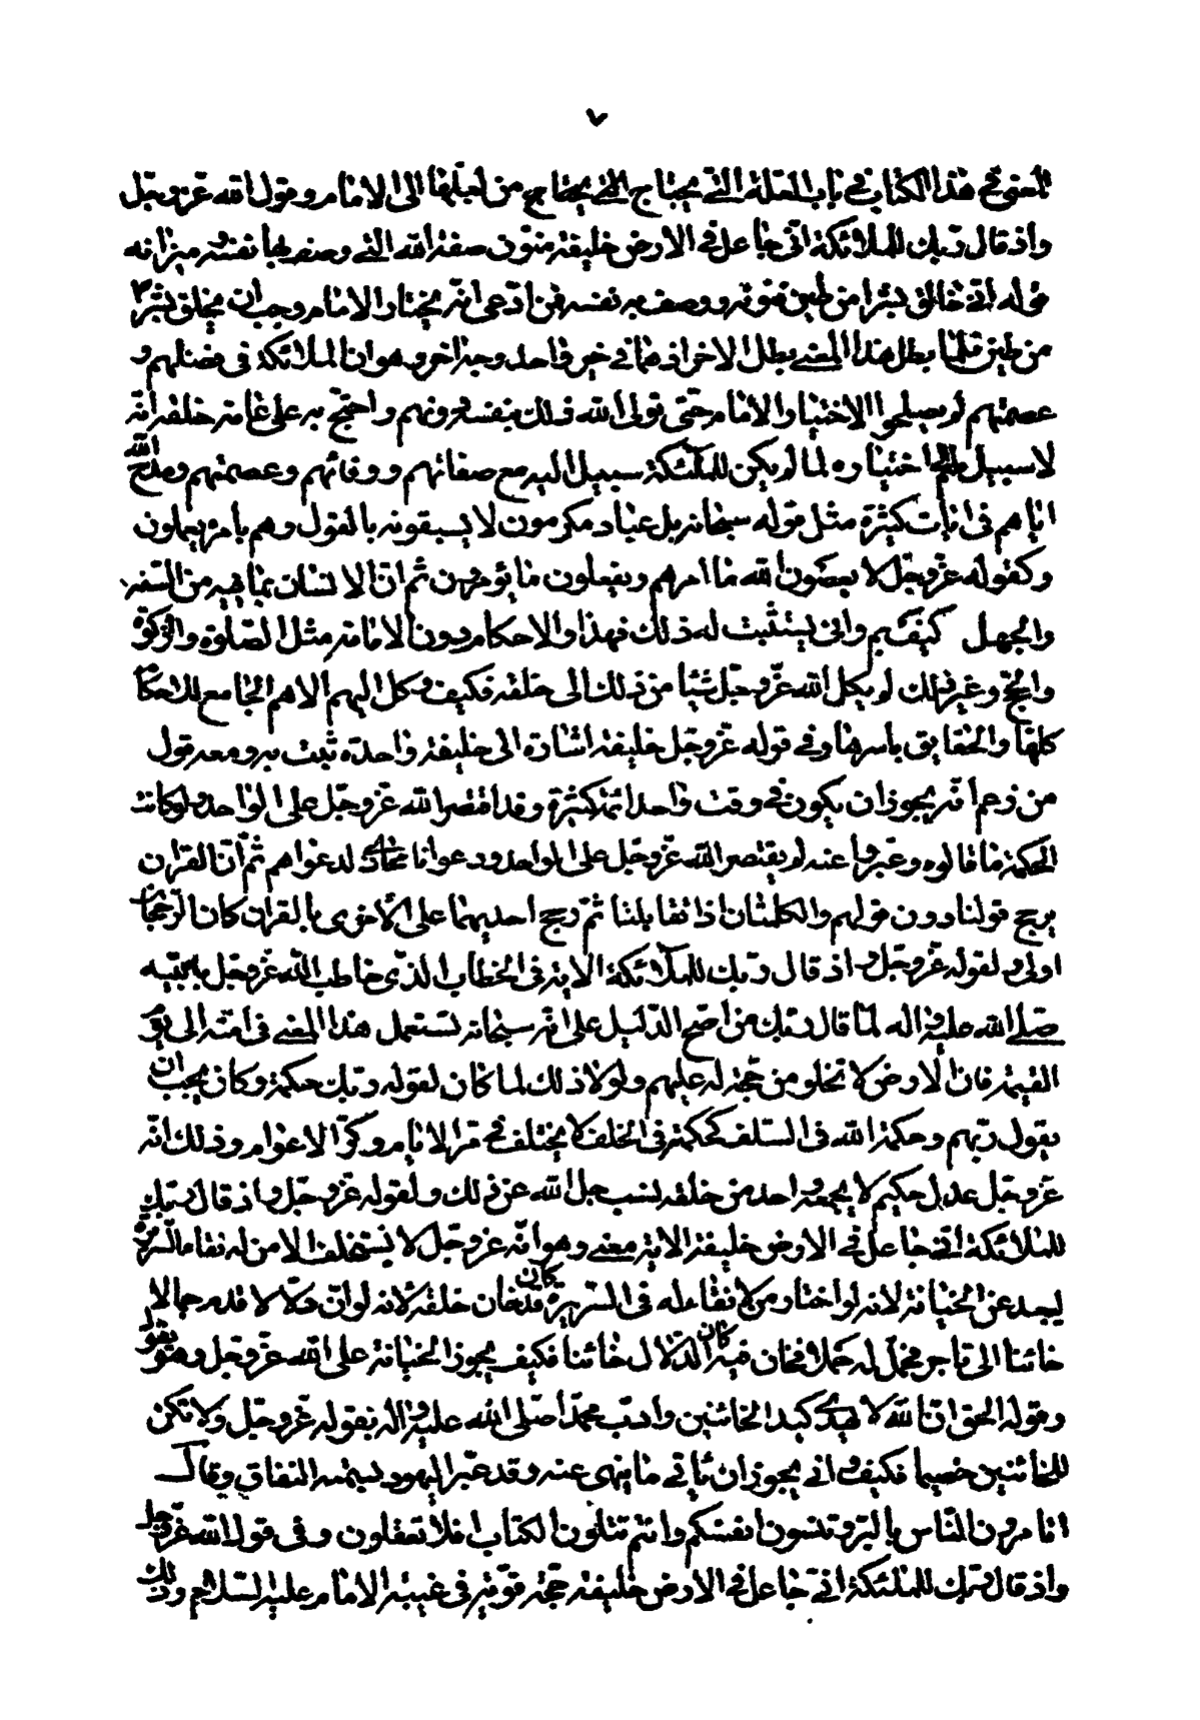 ٧
المعنى في هذا الكتاب في باب العلة التي يحتاج التي يحتاج من اجلها الى الامام وقول الله عز وجل
واذ قال ربك للملائكة انى جاعل فى الارض خليفة منون صفة الله التى وصف بها نفسه ميزانه
قوله انى خالق بشرا من طين فنونه ووصف به نفسه فمن ادعى انه يختار الامام وجب ان يخلق بشرا
من طين فلما بطل هذا المعنى بطل الاخر اذ هما فى خير واحد وجه اخر وهو ان الملائكة فى فضلهم و
عصمتهم لم يصلحوا لاختيار الامام حتى تولى الله ذلك بنفسه دونهم واحتج به على عامة خلقه انه
لا سبيل لهم الى اختياره لما لم يكن للملئكة سبيل اليه مع صفائهم ووفائهم وعصمتهم ومدح الله
اياهم فى ايات كثيرة مثل قوله سبحانه بل عباد مكرمون لا يسبقونه بالقول وهم بامره يعملون
وكقوله عز وجل لا يعصون الله ما امرهم ويفعلون ما يؤمرون ثم ان الانسان بما فيه من السفه
والجهل كيف وانى يستتب له ذلك فهذا والاحكام دون الامامة مثل الصلوة والزكوة
والحج وغير ذلك لم يكل الله عز وجل شيئا من ذلك الى خلقه فكيف وكل اليهم الاهم الجامع للاحكام
كلها والحقايق باسرها وفى قوله عز وجل خليفة اشارة الى خليفة واحدة ثبت به ومعه قول
من زعم انه يجوز ان يكون فى وقت واحد ائمة كثيرة وقد اقتصر الله عز وجل على الواحد ولو كانت
الحكمة ما قالوه وعبروا عنه لم يقتصر الله عز وجل على الواحد ودعوانا محاذ لدعواهم ثم ان القران
يرجح قولنا دون قولهم والكلمتان اذا تقابلتا ثم رجح احديهما على الاخرى بالقران كان الرجحان
اولى ولقوله عز وجل واذ قال ربك للملائكة الاية فى الخطاب الذى خاطب الله عز وجل به نبيه
صلى الله عليه واله لما قال ربك من اصح الدليل على انه سبحانه يستعمل هذا المعنى فى امته الى يوم
القيمة فان الارض لا تخلو من حجة له عليهم ولولا ذلك لما كان لقوله ربك حكمة وكان يجب ان
يقول ربهم وحكمة الله فى السلف كحكمته فى الخلف لا يختلف فى مر الايام وكر الاعوام وذلك انه
عز وجل عدل حكيم لا يجمعه واحد من خلقه نسب جل الله عن ذلك ولقوله عز وجل واذ قال ربك
للملائكة انى جاعل فى الارض خليفة الاية معنى وهو انه عز وجل لا يستخلف الا من له نقاء السريرة
ليبعد عن الخيانة لانه لو اختار من لا نقاء له فى السريرة كان قد خان خلقه لانه لو ان دلالا قدم حمالا
خائنا الى تاجر فحمل له حملا فخان فيه كان الدلال خائنا فكيف يجوز الخيانة على الله عز وجل وهو يقول
وقوله الحق ان الله لا يهدى كيد الخائنين وادب محمدا صلى الله عليه واله بقوله عز وجل ولا تكن
للخائنين خصيما فكيف وانى يجوز ان ياتى ما ينهى عنه وقد عير اليهود بسمة النفاق وقال
اتامرون الناس بالبر وتنسون انفسكم وانتم تتلون الكتاب افلا تعقلون وفى قول الله عز وجل
واذ قال ربك للملئكة انى جاعل فى الارض خليفة حجة قوية فى غيبة الامام عليه السلام وذلك